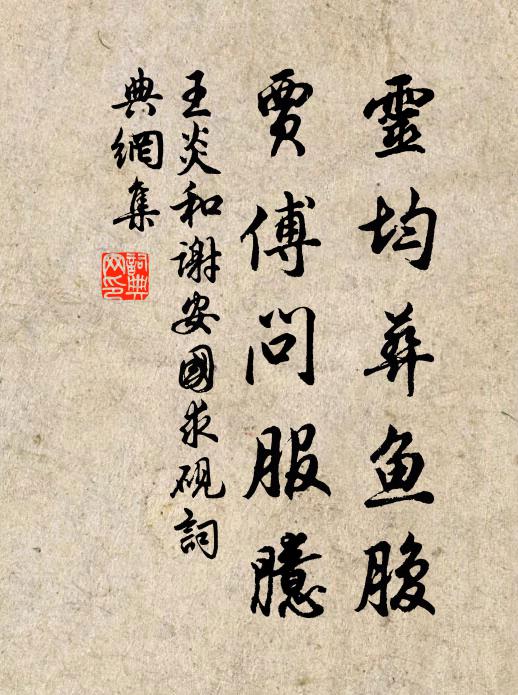 靈均葬魚腹
賈傅問服臆
王炎和谢安國求硯詞
典網集
詞典网印